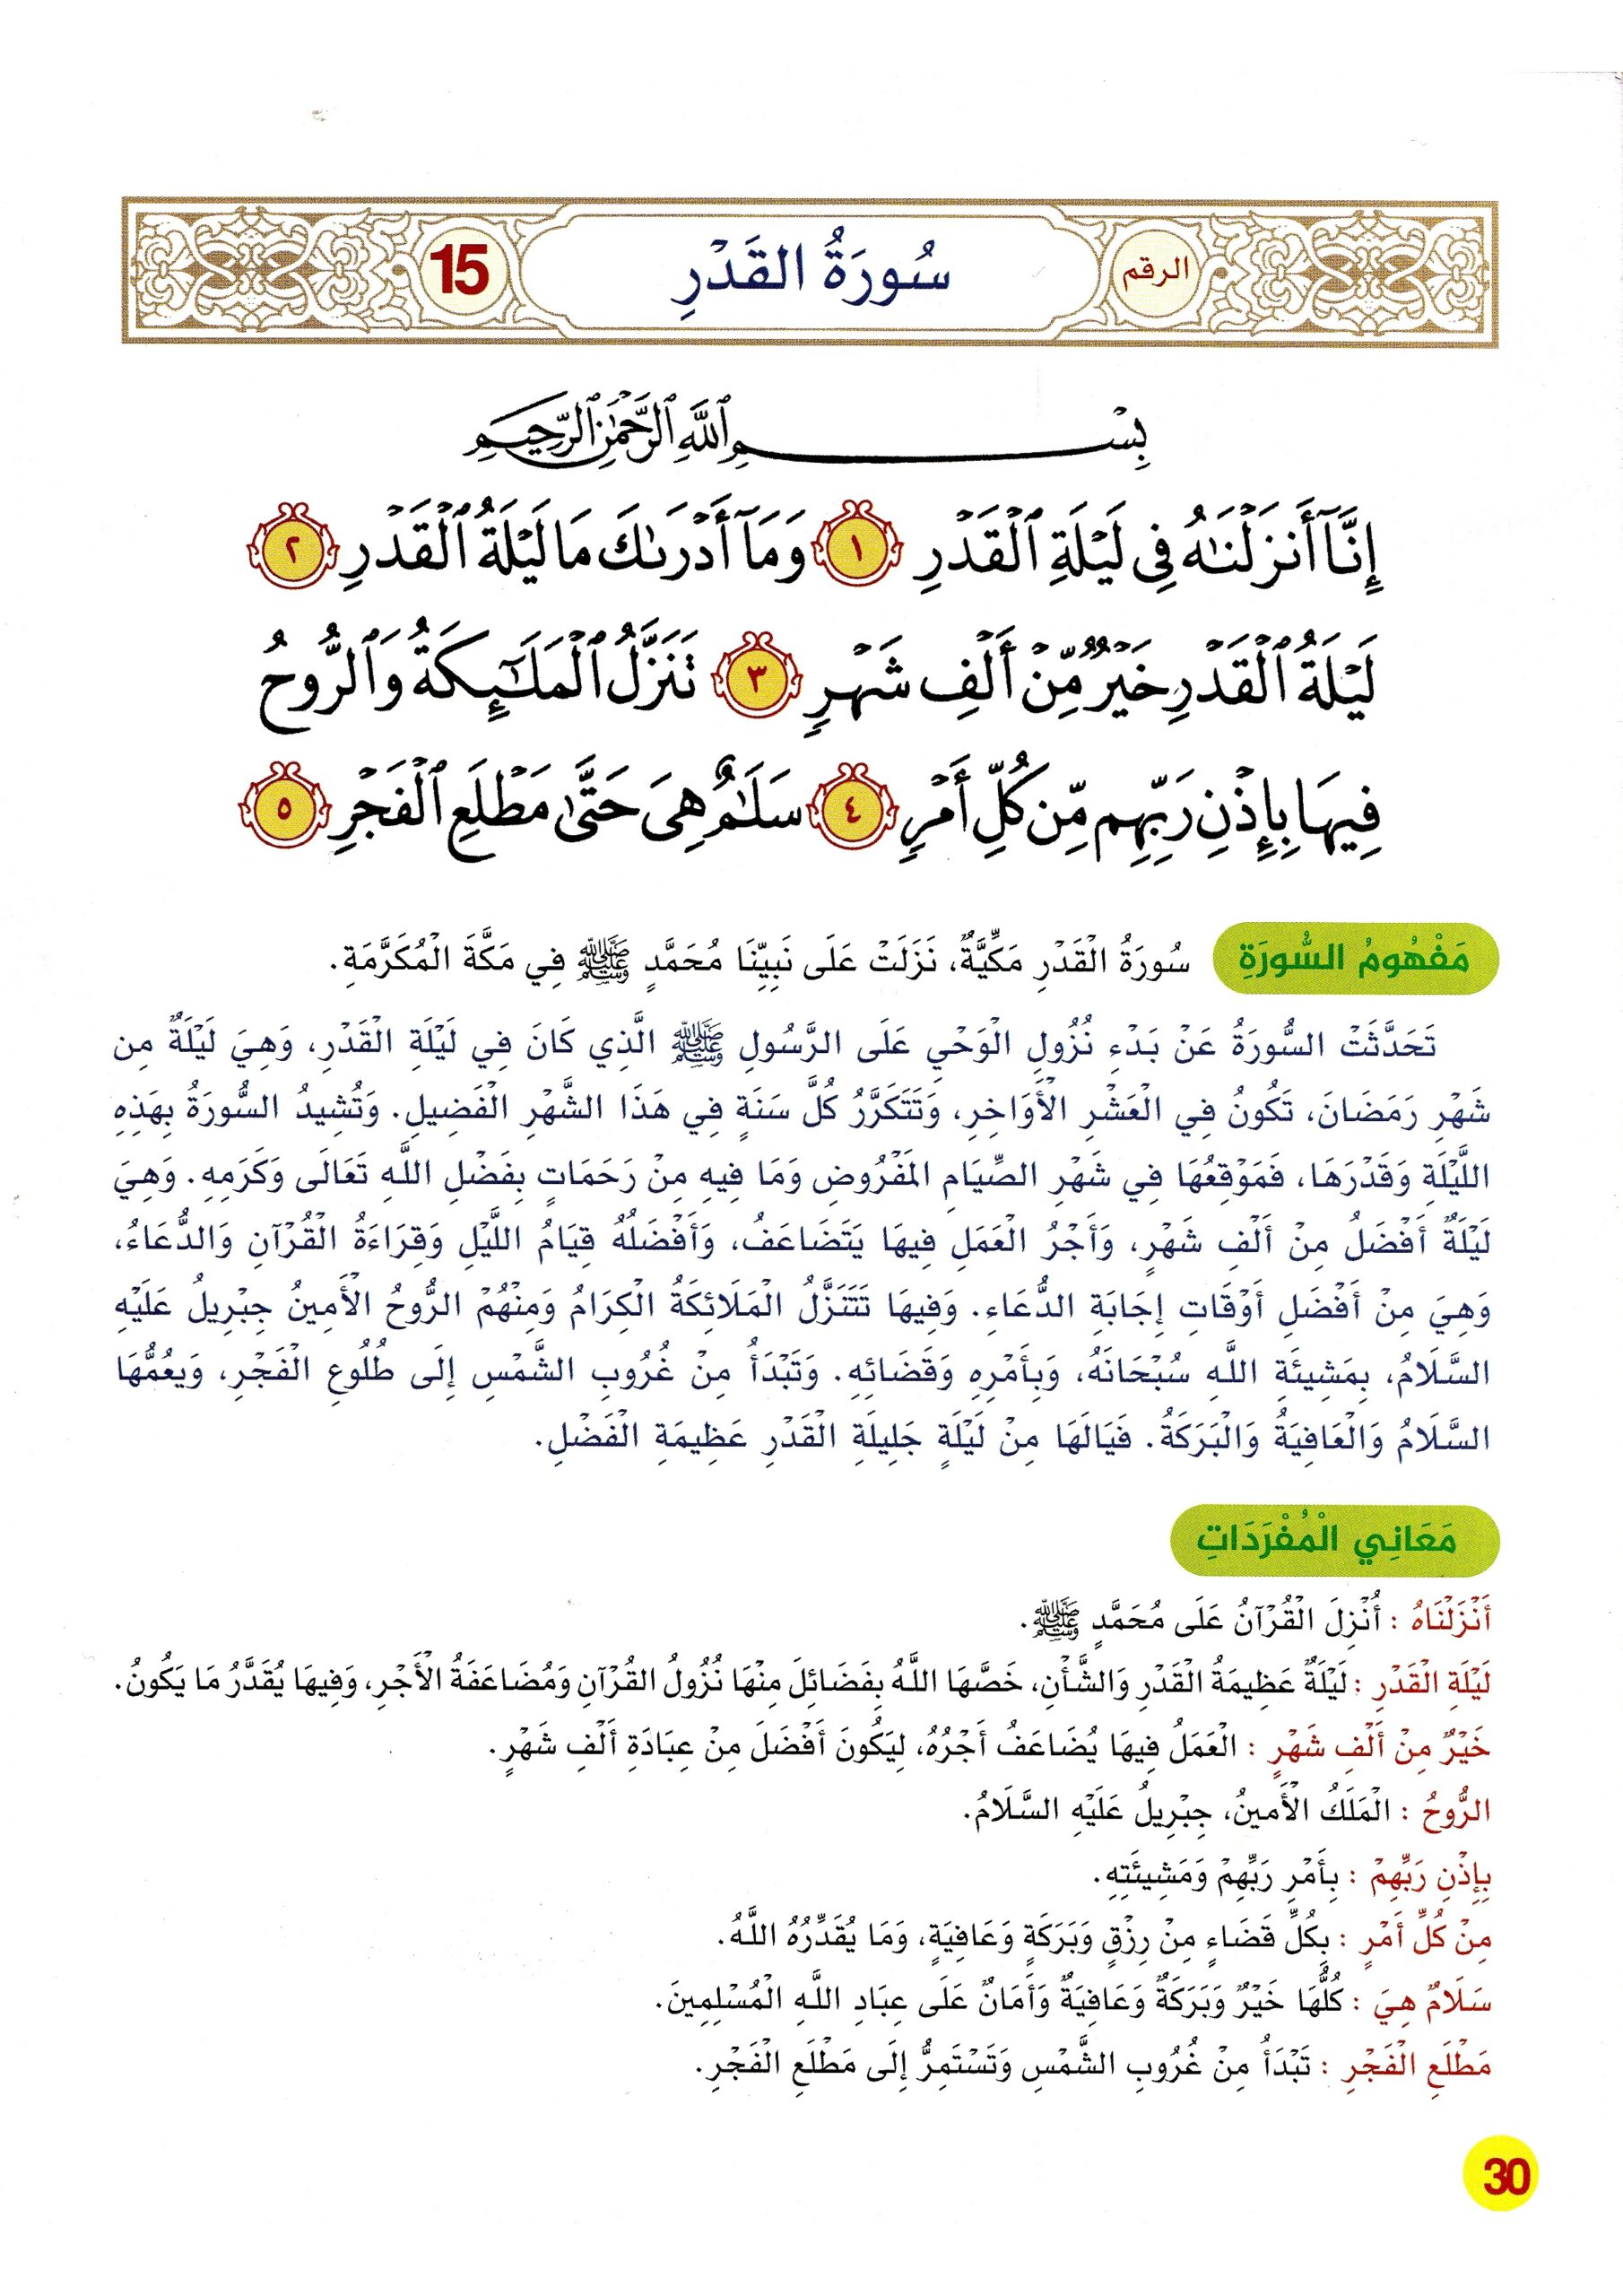 الرقم
سُورَةُ القَدْرِ
15
بِسْمِ ٱللَّهِ ٱلرَّحْمَٰنِ ٱلرَّحِيمِ
إِنَّآ أَنزَلْنَٰهُ فِى لَيْلَةِ ٱلْقَدْرِ ١ وَمَآ أَدْرَىٰكَ مَا لَيْلَةُ ٱلْقَدْرِ ٢
لَيْلَةُ ٱلْقَدْرِ خَيْرٌ مِّنْ أَلْفِ شَهْرٍ ٣ تَنَزَّلُ ٱلْمَلَٰٓئِكَةُ وَٱلرُّوحُ
فِيهَا بِإِذْنِ رَبِّهِم مِّن كُلِّ أَمْرٍ ٤ سَلَٰمٌ هِىَ حَتَّىٰ مَطْلَعِ ٱلْفَجْرِ ٥
مَفْهُومُ السُّورَةِ سُورَةُ الْقَدْرِ مَكِّيَّةٌ، نَزَلَتْ عَلَى نَبِيِّنَا مُحَمَّدٍ ﷺ فِي مَكَّةَ الْمُكَرَّمَةِ.
تَحَدَّثَتْ السُّورَةُ عَنْ بَدْءِ نُزُولِ الْوَحْيِ عَلَى الرَّسُولِ ﷺ الَّذِي كَانَ فِي لَيْلَةِ الْقَدْرِ، وَهِيَ لَيْلَةٌ مِن
شَهْرِ رَمَضَانَ، تَكُونُ فِي الْعَشْرِ الْأَوَاخِرِ، وَتَتَكَرَّرُ كُلَّ سَنَةٍ فِي هَذَا الشَّهْرِ الْفَضِيلِ. وَتُشِيدُ السُّورَةُ بِهَذِهِ
اللَّيْلَةِ وَقَدْرَهَا، فَمَوْقِعُهَا فِي شَهْرِ الصِّيَامِ المَفْرُوضِ وَمَا فِيهِ مِنْ رَحَمَاتٍ بِفَضْلِ اللَّهِ تَعَالَى وَكَرَمِهِ. وَهِيَ
لَيْلَةٌ أَفْضَلُ مِنْ أَلْفِ شَهْرٍ، وَأَجْرُ الْعَمَلِ فِيهَا يَتَضَاعَفُ، وَأَفْضَلُهُ قِيَامُ اللَّيْلِ وَقِرَاءَةُ الْقُرْآنِ وَالدُّعَاءُ،
وَهِيَ مِنْ أَفْضَلِ أَوْقَاتِ إِجَابَةِ الدُّعَاءِ. وَفِيهَا تَتَنَزَّلُ الْمَلَائِكَةُ الْكِرَامُ وَمِنْهُمْ الرُّوحُ الْأَمِينُ جِبْرِيلُ عَلَيْهِ
السَّلَامُ، بِمَشِيئَةِ اللَّهِ سُبْحَانَهُ، وَبِأَمْرِهِ وَقَضَائِهِ. وَتَبْدَأُ مِنْ غُرُوبِ الشَّمْسِ إِلَى طُلُوعِ الْفَجْرِ، وَيَعُمُّهَا
السَّلَامُ وَالْعَافِيَةُ وَالْبَرَكَةُ. فَيَالَهَا مِنْ لَيْلَةٍ جَلِيلَةِ الْقَدْرِ عَظِيمَةِ الْفَضْلِ.
مَعَانِي الْمُفْرَدَاتِ
أَنْزَلْنَاهُ : أُنْزِلَ الْقُرْآنُ عَلَى مُحَمَّدٍ ﷺ.
لَيْلَةِ الْقَدْرِ : لَيْلَةٌ عَظِيمَةُ الْقَدْرِ وَالشَّأْنِ، خَصَّهَا اللَّهُ بِفَضَائِلَ مِنْهَا نُزُولُ الْقُرْآنِ وَمُضَاعَفَةُ الْأَجْرِ، وَفِيهَا يُقَدَّرُ مَا يَكُونُ.
خَيْرٌ مِنْ أَلْفِ شَهْرٍ : الْعَمَلُ فِيهَا يُضَاعَفُ أَجْرُهُ، لِيَكُونَ أَفْضَلَ مِنْ عِبَادَةِ أَلْفِ شَهْرٍ.
الرُّوحُ : الْمَلَكُ الْأَمِينُ، جِبْرِيلُ عَلَيْهِ السَّلَامُ.
بِإِذْنِ رَبِّهِمْ : بِأَمْرِ رَبِّهِمْ وَمَشِيئَتِهِ.
مِنْ كُلِّ أَمْرٍ : بِكُلِّ قَضَاءٍ مِنْ رِزْقٍ وَبَرَكَةٍ وَعَافِيَةٍ، وَمَا يُقَدِّرُهُ اللَّهُ.
سَلَامٌ هِيَ : كُلُّهَا خَيْرٌ وَبَرَكَةٌ وَعَافِيَةٌ وَأَمَانٌ عَلَى عِبَادِ اللَّهِ الْمُسْلِمِينَ.
مَطْلَعِ الْفَجْرِ : تَبْدَأُ مِنْ غُرُوبِ الشَّمْسِ وَتَسْتَمِرُّ إِلَى مَطْلَعِ الْفَجْرِ.
30